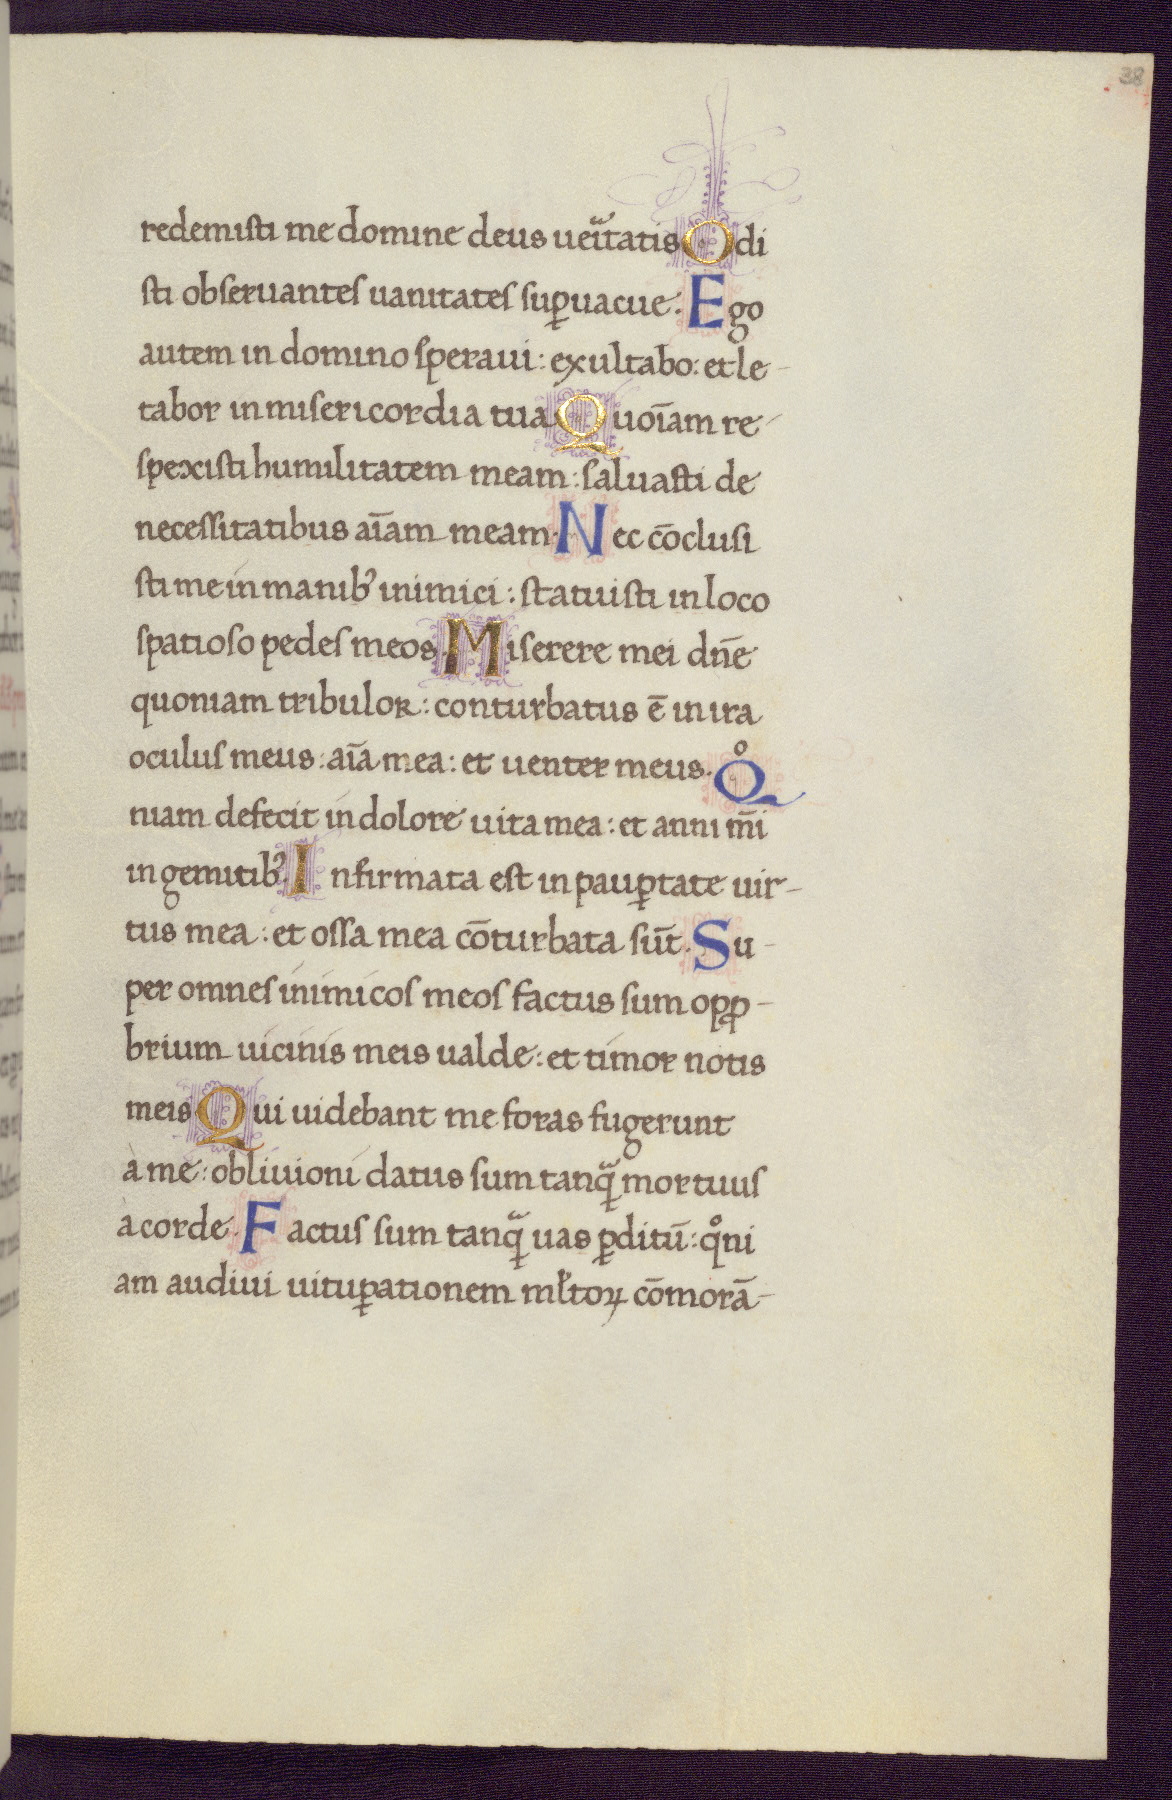 38
redemisti me domine deus ueı̄tatis Odi
sti obseruantes uanitates suꝑuacue. Ego
autem in domino speraui: exultabo: et le-
tabor in misericordia tua Quoı̄am re-
spexisti humilitatem meam: saluasti de
necessitatibus aı̄am meam. Nec cōclusi
sti me in manibꝰ inimici: statuisti in loco
spatioso pedes meos. Miserere mei dn̄e
quoniam tribulor: conturbatus ē in ira
oculus meus: aı̄a mea: et uenter meus. Qͦ
niam defecit in dolore uita mea: et anni m̄i
in gemitibꝰ. Infirmata est in pauꝑtate uir-
tus mea: et ossa mea cōturbata sūt. Su-
per omnes inimicos meos factus sum opꝓ-
brium uicinis meis ualde: et timor notis
meis Qui uidebant me foras fugerunt
a me: obliuioni datus sum tanq̃ mortuus
a corde. Factus sum tanq̃ uas ꝑditū: qͦni
am audiui uituꝑationem ml̓toꝝ cōmorā-